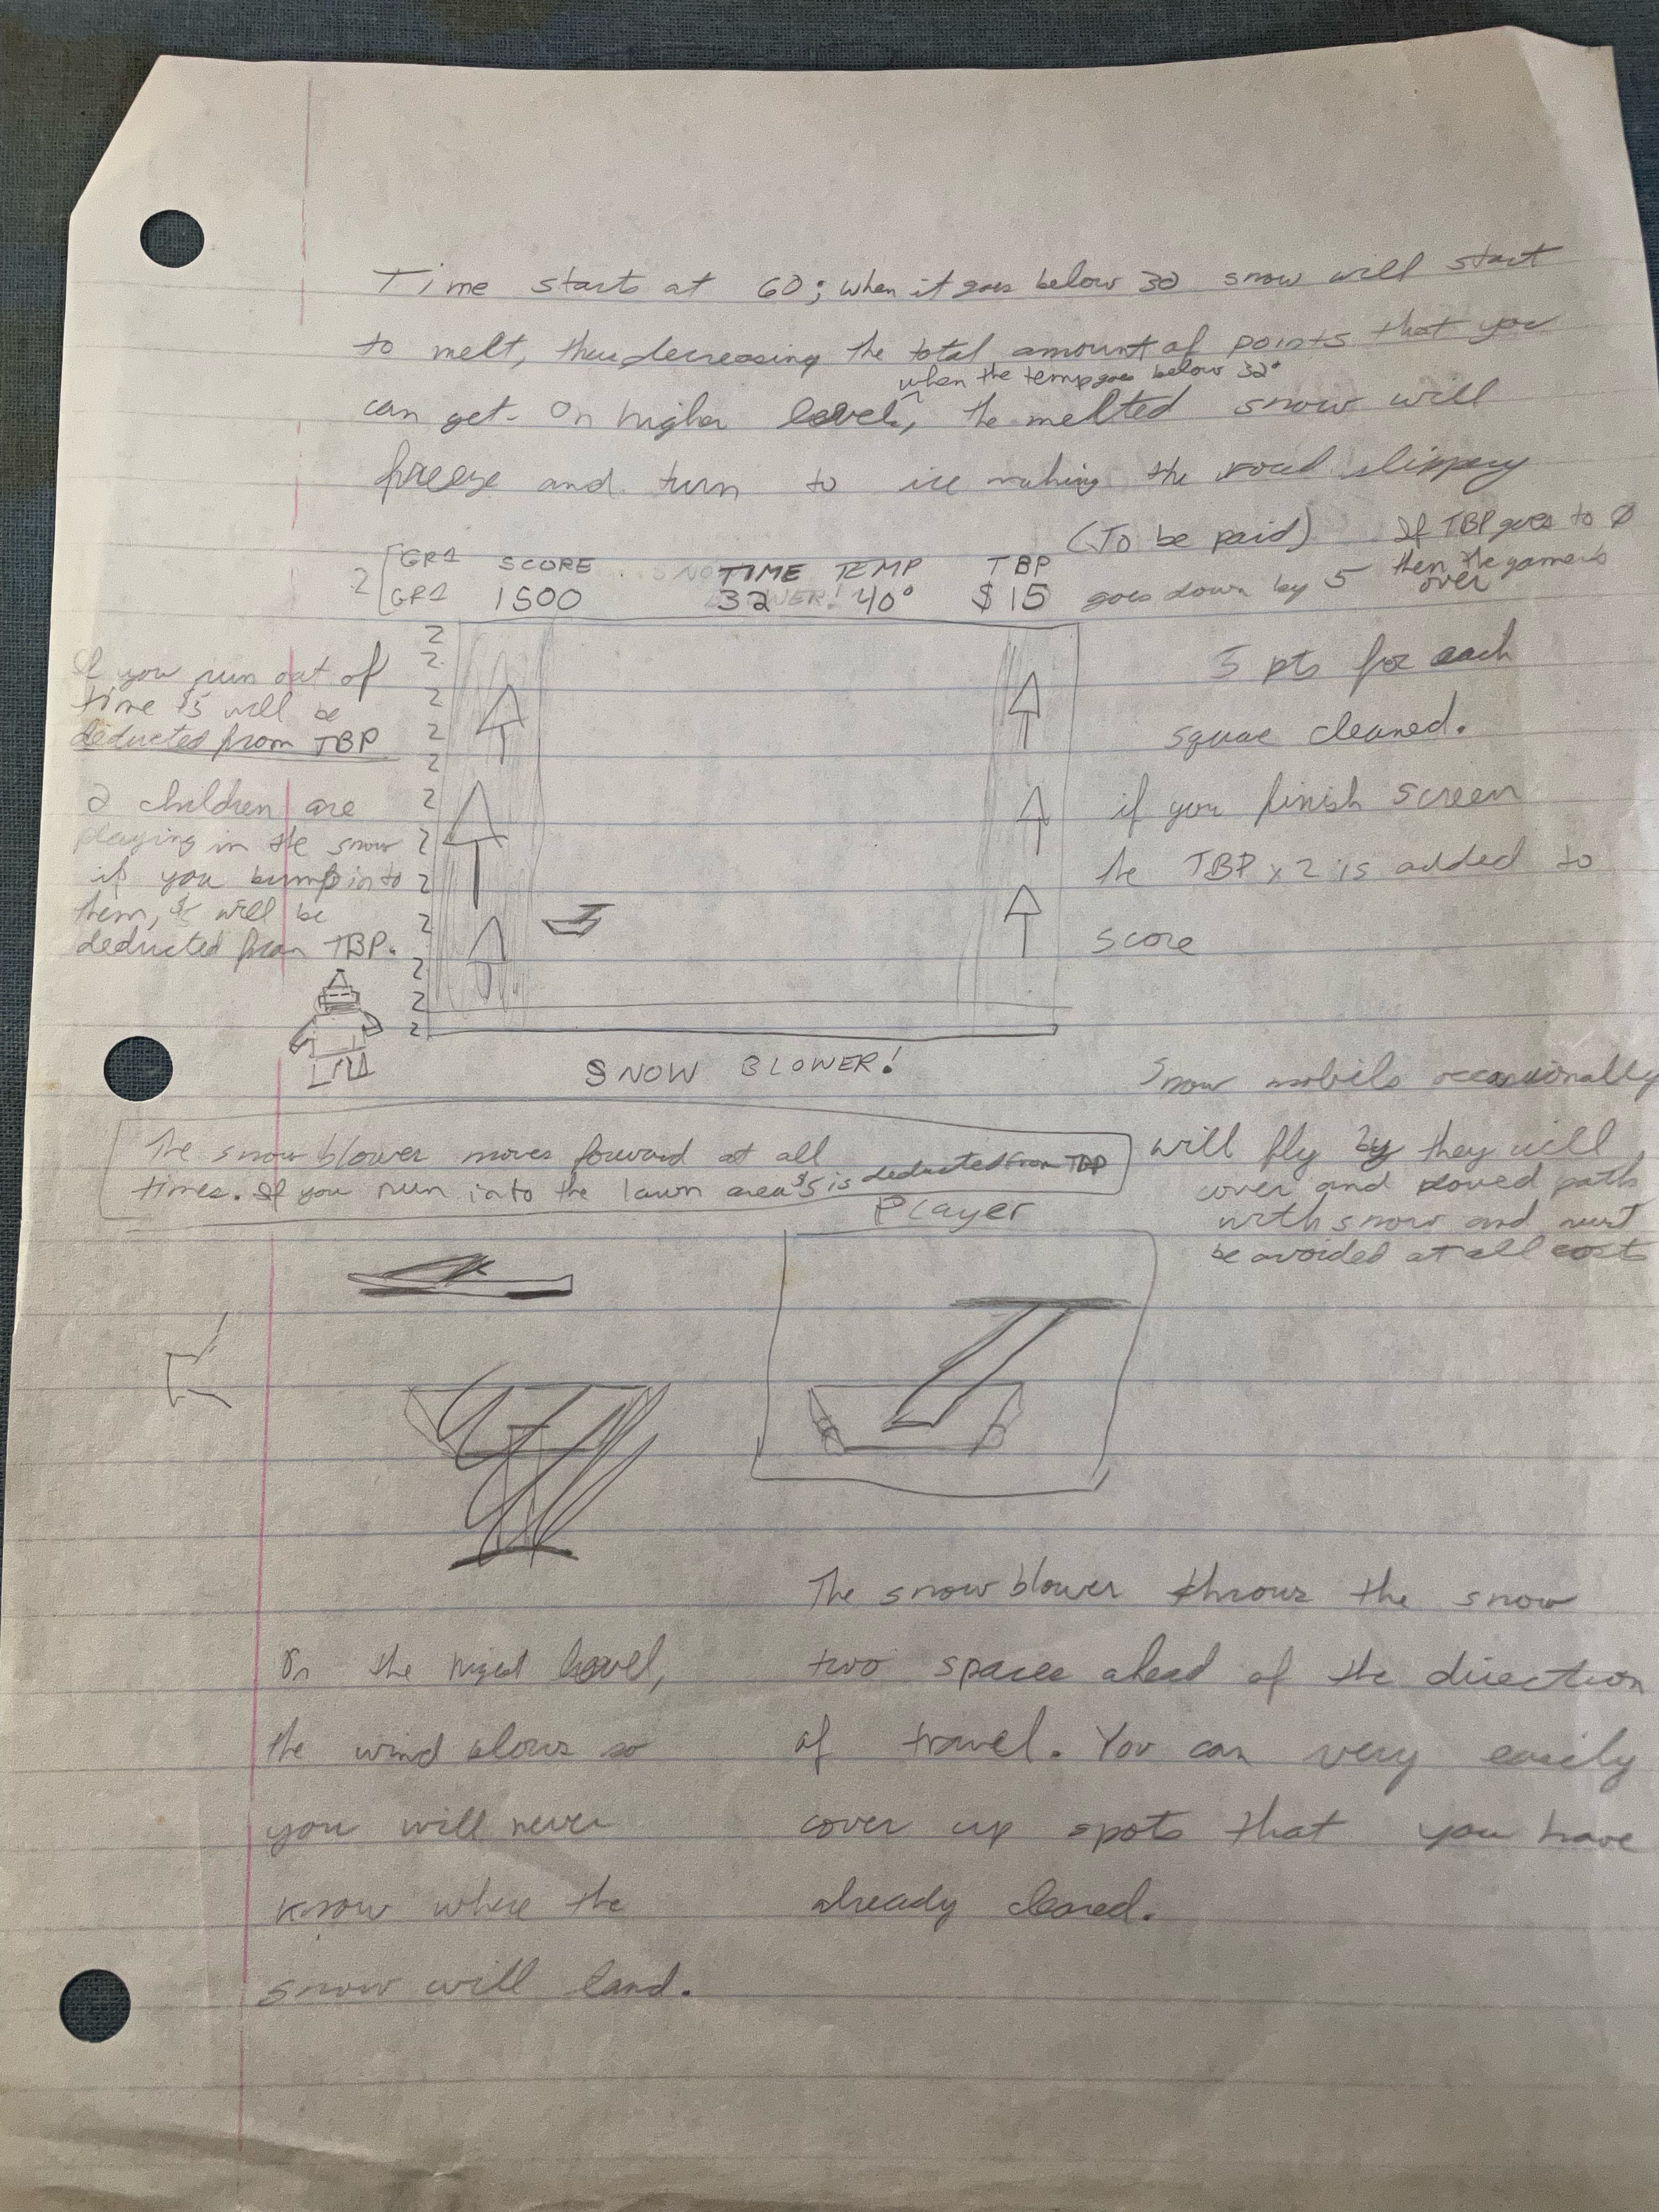 Time starts at 60; when it goes below 30 snow will start
to melt, thus decreasing the total amount of points that you
when the temp goes below 32°
can get. On higher levels, the melted snow will
freeze and turn to ice making the road slippery
(To be paid) If TBP goes to 0
then the game is
over
2 GR1 SCORE TIME TEMP TBP
GR1 1500 32 40° $15 goes down by 5
2
2
2
2
2
2
2
2
2
2
2
2
If you run out of
time $5 will be
deducted from TBP
2 children are
playing in the snow
if you bump into
them, will be
deducted from TBP.
5 pts for each
square cleaned.
if you finish screen
the TBP x 2 is added to
score
SNOW BLOWER!
Snow mobils occassionally
will fly by they will
cover and ploved path
with snow and must
be avoided at all costs
The snow blower moves forward at all
times. If you run into the lawn area $5 is deducted from TBP
Player
The snow blower throws the snow
two spaces ahead of the direction
of travel. You can very easily
cover up spots that you have
already cleared.
On the level,
the wind blows so
you will never
know where the
snow will land.